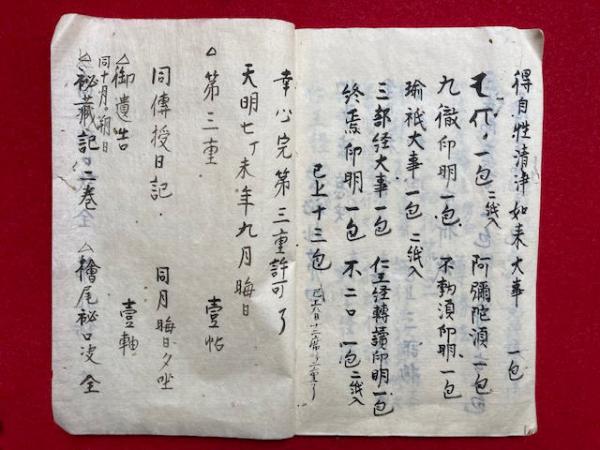 得自性清浄如来大事 一包
一包 二紙入 阿彌陀須一包
九徹印明一包 不動須印明一包
瑜祇大事一包 二紙入
三部経大事一包 仁王経轉讀印明一包
終焉印明一包 不二口一包 二紙入
已上十三包
幸心完第三重許可了
天明七丁未年九月晦日
△第三重 壹帖
同傳授日記 同月晦日夕座 壹軸
△御遺告
同十月朔日
△秘蔵記 二巻 △檜尾秘口决 全